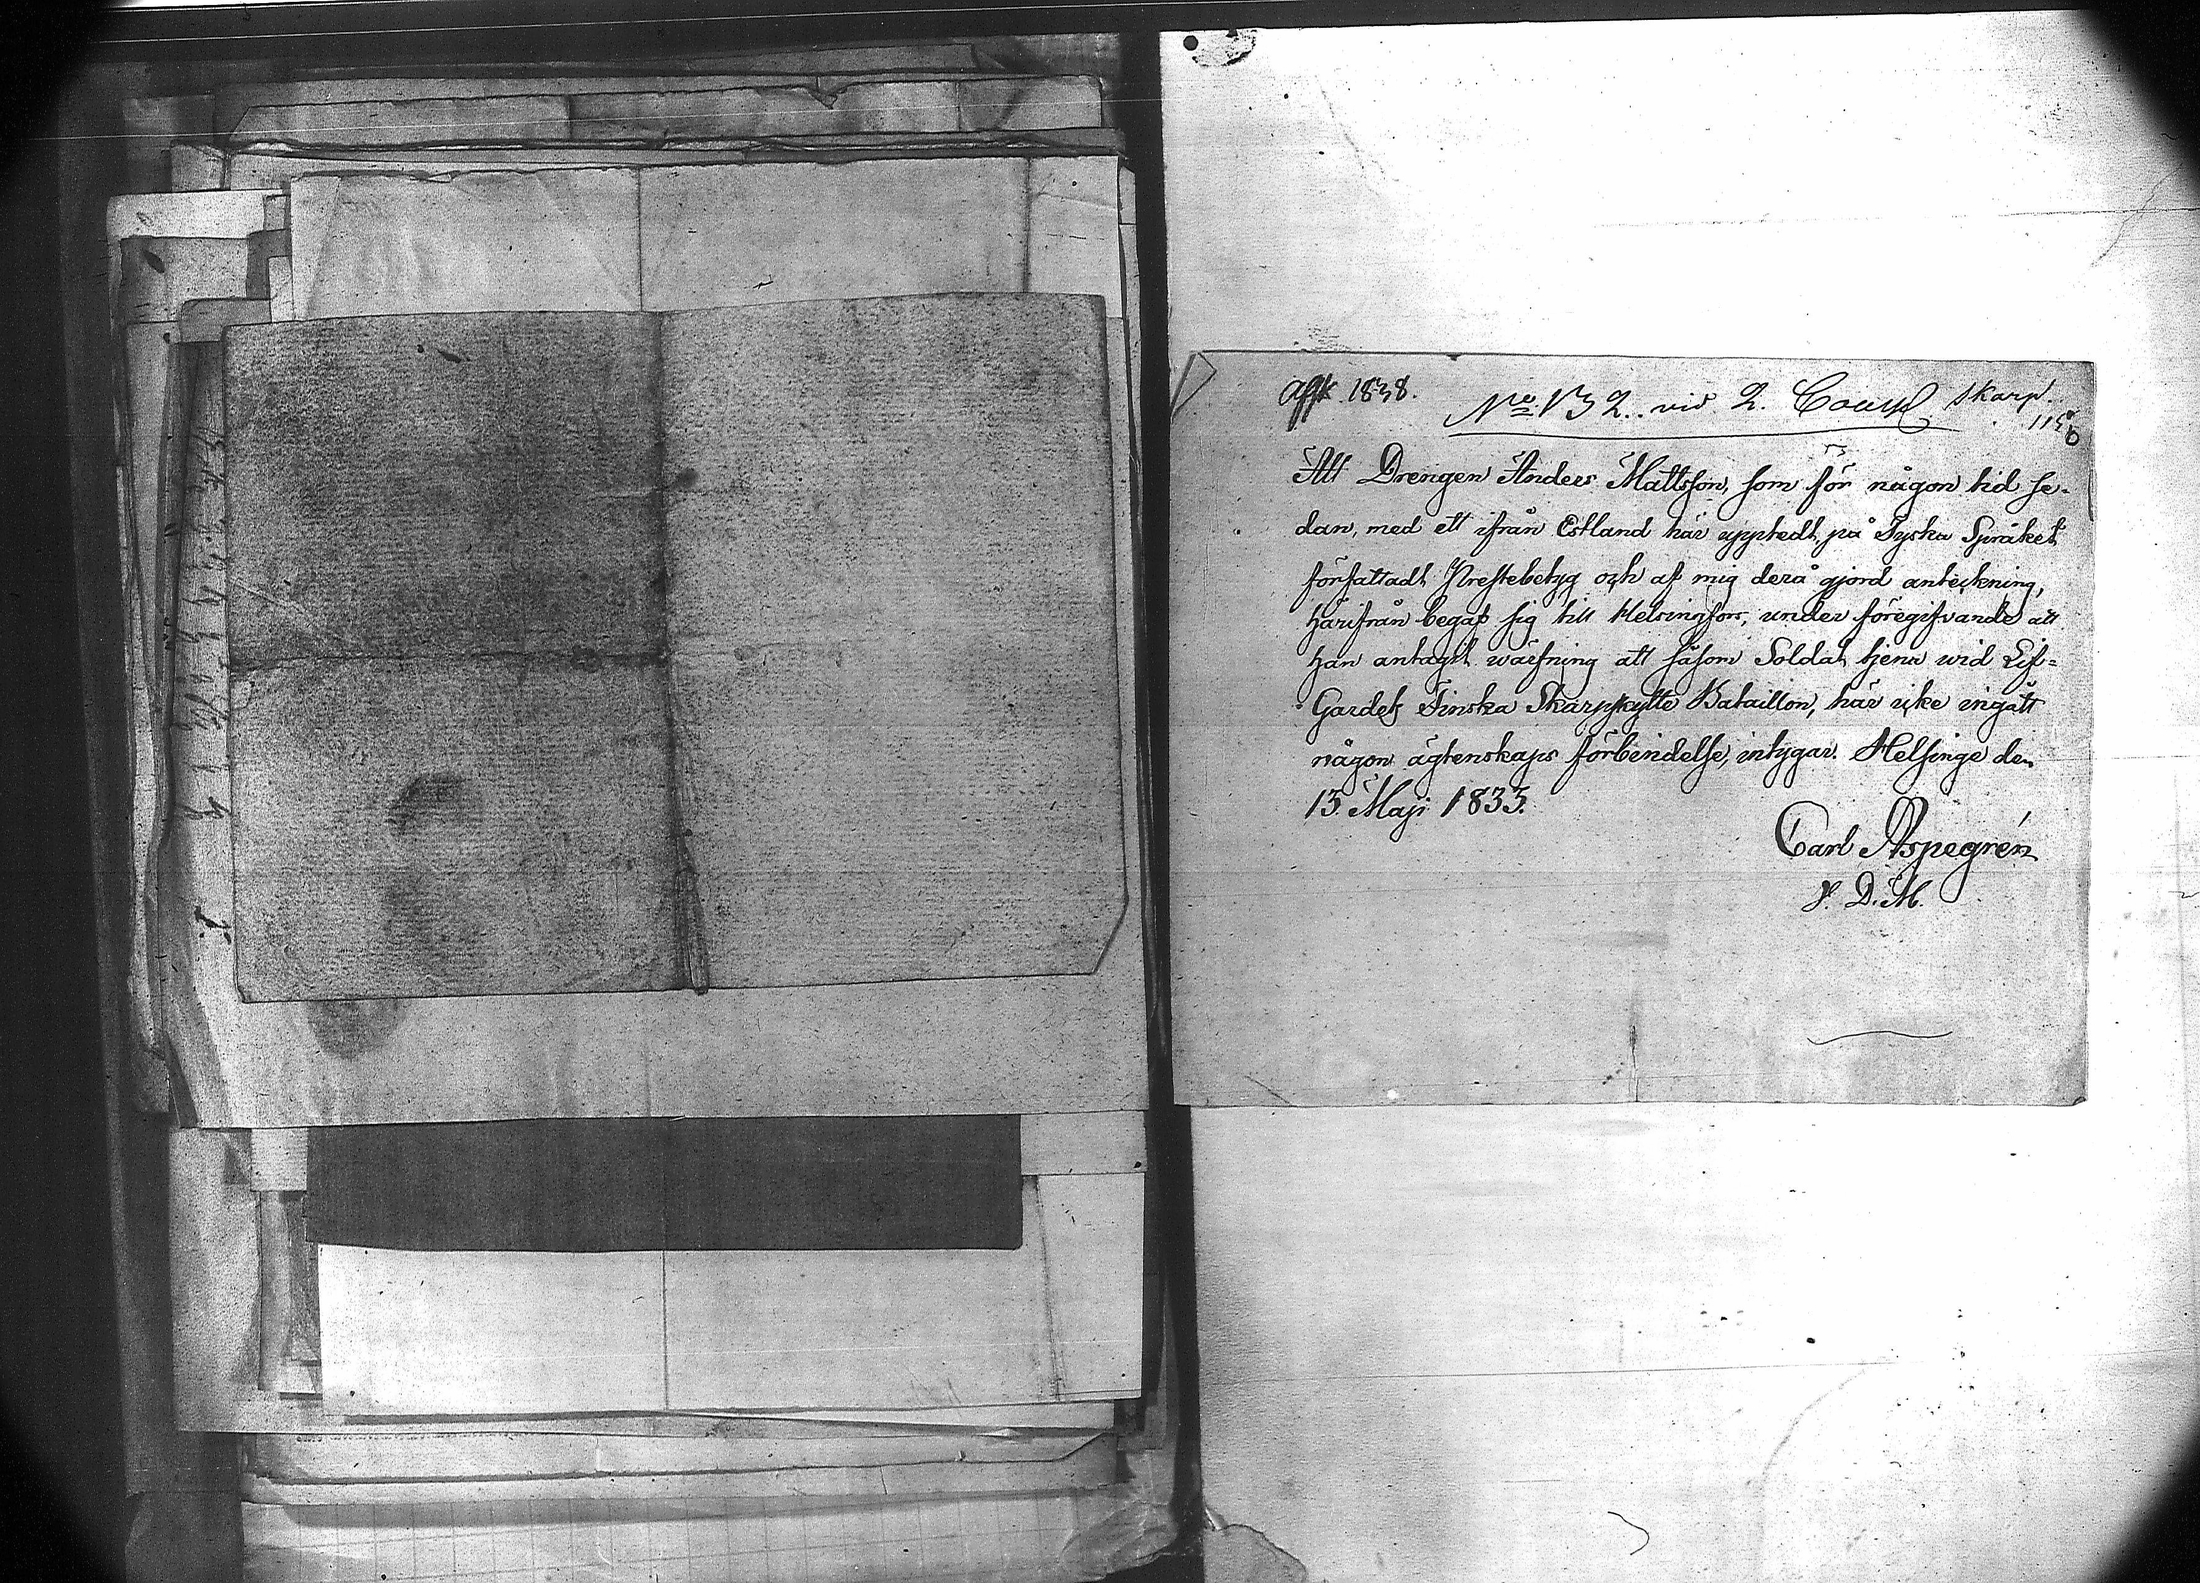 Afsk. 1838.
No 132. vid 2. Comp. skarp.
Att Drengen Anders Mattsson, som för någon tid se-
dan, med ett ifrån Estland här upptedt, på Tyska Språket
författadt Prestebetyg och af mig derå gjord anteckning,
härifrån begaf sig till Helsingfors, under föregifvande att
han antagit värfning att såsom Soldat tjena wid Lif-
Gardets Finska Skarpskytte Bataillon, här icke ingått
någon ägtenskaps förbindelse, intygar. Helsinge den
13 Maji 1833.
Carl Aspegrén
V. D. M.